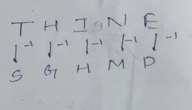 T H I N E
↓-1 ↓-1 ↓-1 ↓-1 ↓-1
S G H M D